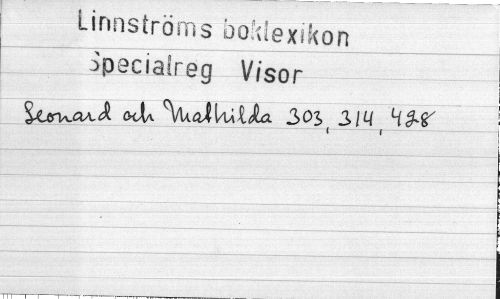 Linnströms boklexikon
Specialreg Visor
Leonard och Mathilda 303, 314, 428